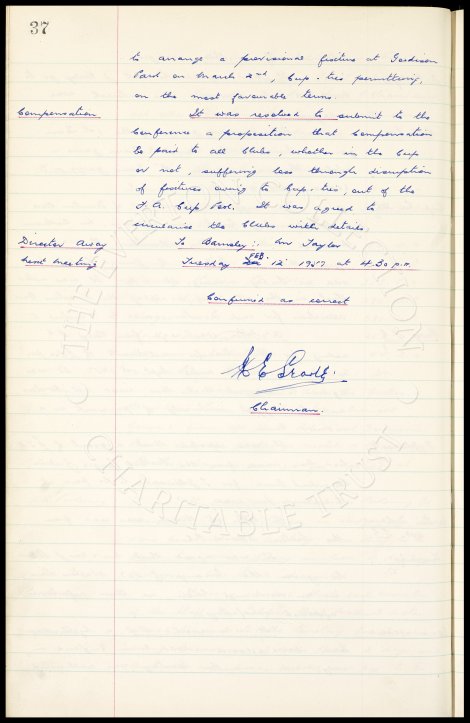 37
to arrange a provisional fixture at Goodison
Park on March 2nd, Cup-ties permitting,
on the most favourable terms.
Compensation It was resolved to submit to the
Conference a proposition that Compensation
be paid to all Clubs, whether in the Cup
or not, suffering loss through disruption
of fixtures owing to Cup-ties, out of the
F.A. Cup Pool. It was agreed to
circularise the Clubs with details.
Director Away To Barnsley:- Mr Taylor
Next Meeting Tuesday FEB. 12 1957 at 4.30 p.m.
Confirmed as correct
Chairman.
THE EVERTON COLLECTION
CHARITABLE TRUST